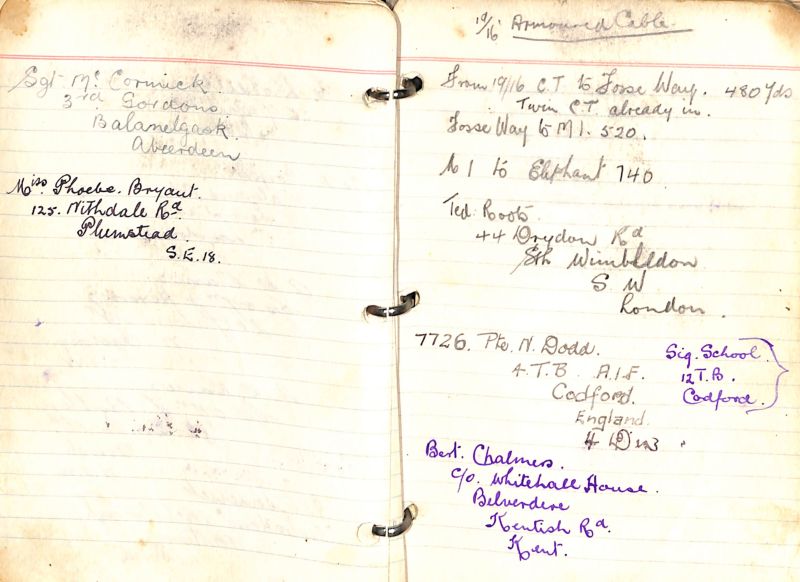 Sgt Mc Cormick.
3rd Gordons
Balanelgask.
Aberdeen
Miss Phoebe. Bryant.
125. Nithdale Rd.
Plumstead.
S.E.18.
19/16 Armoured Cable.
From 19/16 C.T. to Fosse Way. 480 Yds
Twin C.T. already in.
Fosse Way to M1. 520.
M 1 to Elephant 740
Ted. Roots.
44 Drydon Rd
Sth Wimbledon
S W
London.
7726. Pte. N. Dodd.
4.T.B A.I.F.
Codford.
England.
4 Div
Sig. School.
12 T.B.
Codford.
Bert. Chalmers.
C/o. Whitehall House.
Belverdere
Kentish Rd.
Kent.